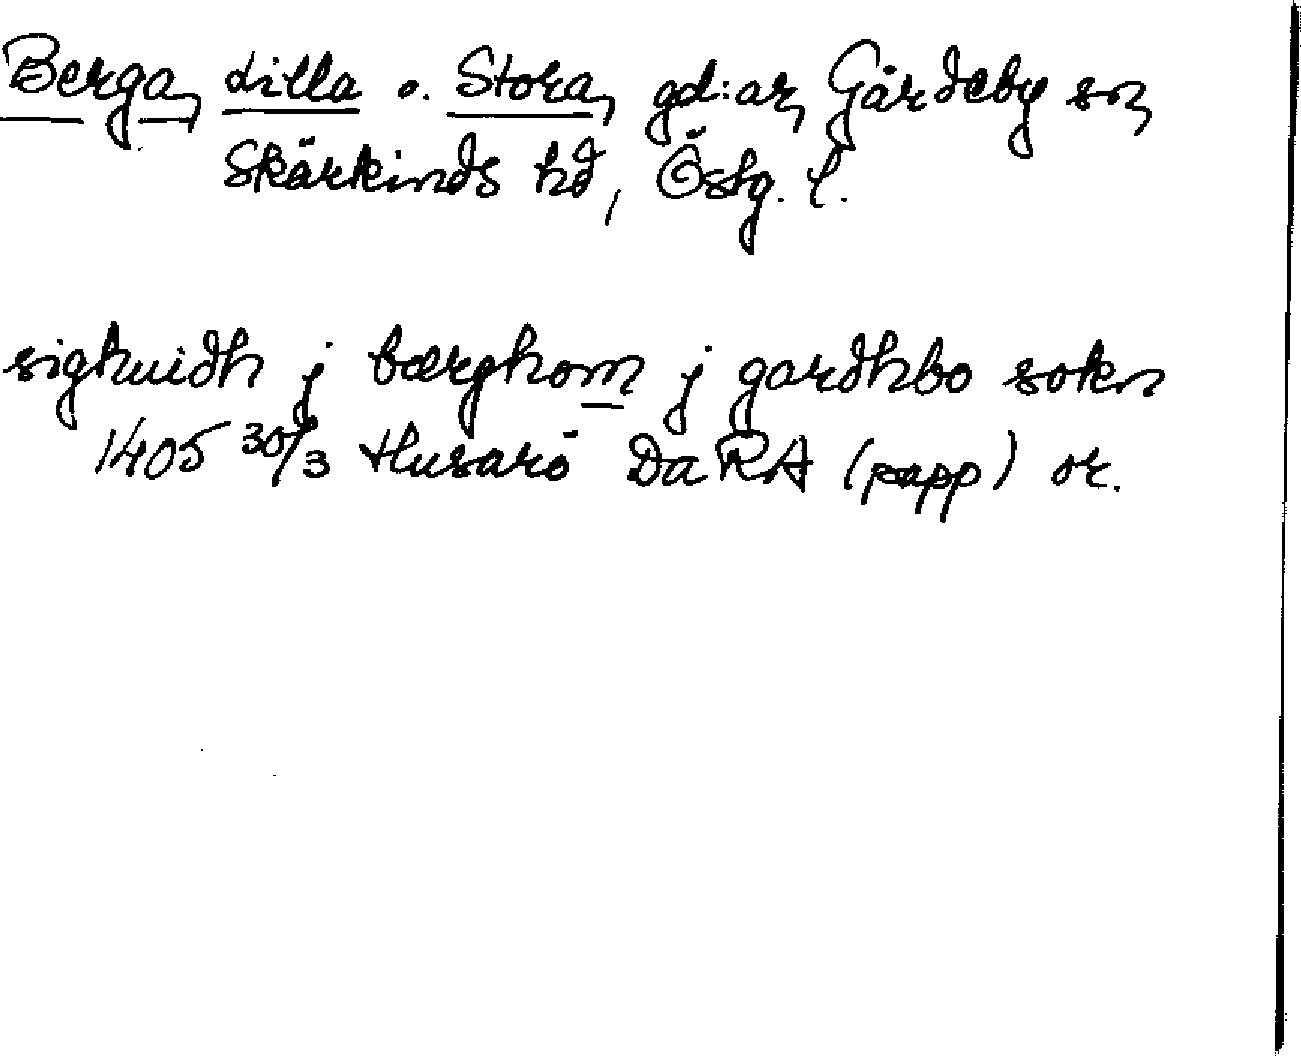 Berga, Lilla o. Stora, gd:ar, Gärdeby sn,
Skärkinds hd, Östg. l.
sighuidh j bærghom j gardhbo sokn
1405 30/3 Husarö Da RA (papp) or.